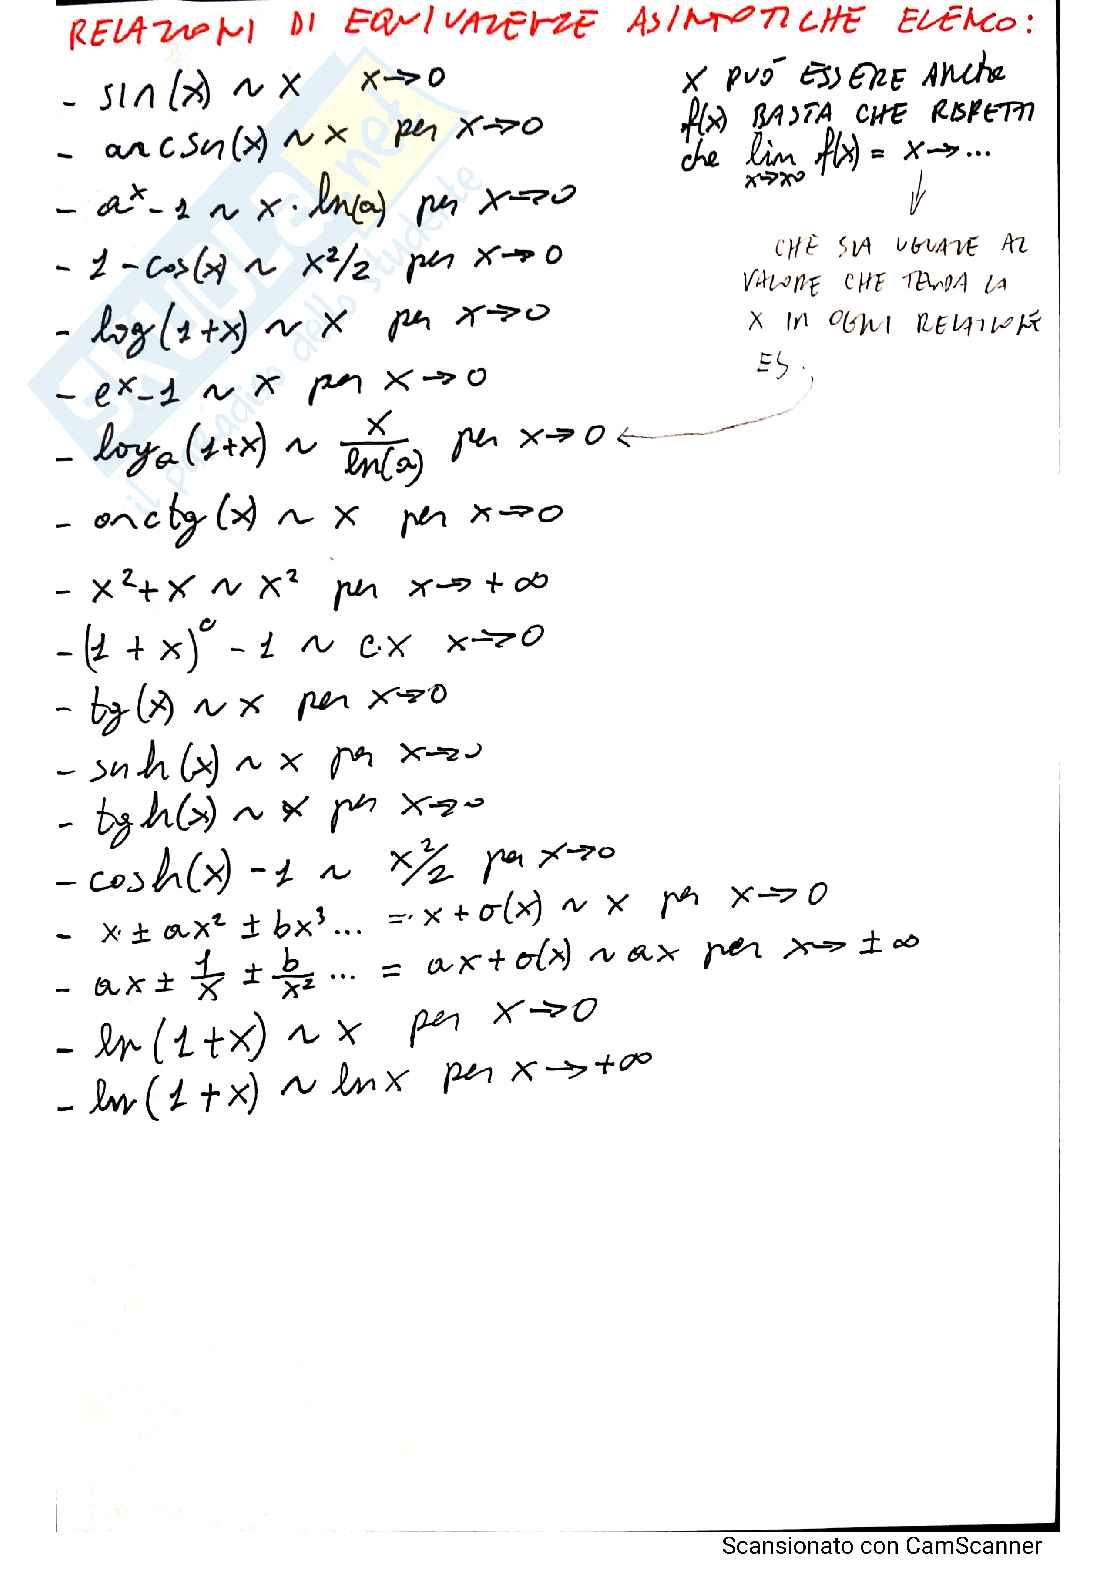 RELAZIONI DI EQUIVALENZE ASINTOTICHE ELENCO:
- sin(x) ~ x x→0
- arcsn(x) ~ x per x→0
- a^x - 1 ~ x · ln(a) per x→0
- 1 - cos(x) ~ x²/2 per x→0
- log(1+x) ~ x per x→0
- e^x - 1 ~ x per x→0
- log_a(1+x) ~ x/ln(a) per x→0
- arctg(x) ~ x per x→0
- x² + x ~ x² per x→ +∞
- (1 + x)^c - 1 ~ c·x x→0
- tg(x) ~ x per x→0
- snh(x) ~ x per x→0
- tgh(x) ~ x per x→0
- cosh(x) - 1 ~ x²/2 per x→0
- x ± ax² ± bx³ ... = x + o(x) ~ x per x→0
- ax ± 1/x ± b/x² ... = ax + o(x) ~ ax per x→ ±∞
- ln(1+x) ~ x per x→0
- ln(1+x) ~ lnx per x→+∞
X PUÒ ESSERE ANche
f(x) BASTA CHE RISPETTI
che lim x→x0 f(x) = x→...
CHE SIA UGUALE AL
VALORE CHE TENDA LA
X IN OGNI RELAZIONE
ES.
SKUOLA.net
il paradiso dello studente
Scansionato con CamScanner